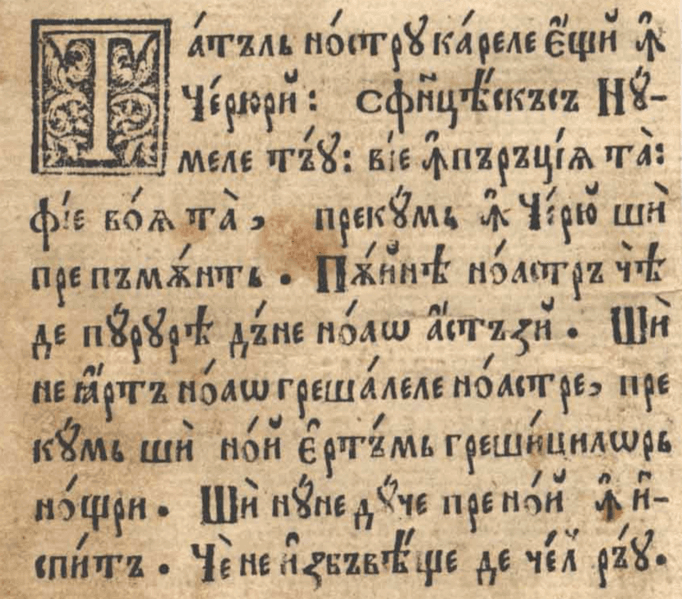 Та́тъль но́стрꙋ ка́реле є҆́щй ꙟ҆
Че́рюрй: Сфїнцѣ́скъсъ Нꙋ́-
меле тъ́ꙋ: ві́е ꙟ҆пъръці́ѧ та̀:
фі́е во́ѧ та̀, прекꙋ́мь ꙟ҆ Че́рю̆ шѝ
пре пъмѫ́нть. Пѫ́йнѣ но́астръ чѣ̀
де пꙋ́рꙋрѣ дъ́не но́аѡ а҆́стъꙁй. Шѝ
не ꙗ҆́ртъ но́аѡ греша́леле но́астре, пре
кꙋ́мь шѝ но́й є҆ртъ́мь греши́цилѡрь
но́щри. Шѝ нꙋ́не дꙋ́че пре но́й ꙟ҆ и҆-
спи́тъ. Чѐ не и҆ꙁбъвѣ́ще де че́л̆ ръ́ꙋ.